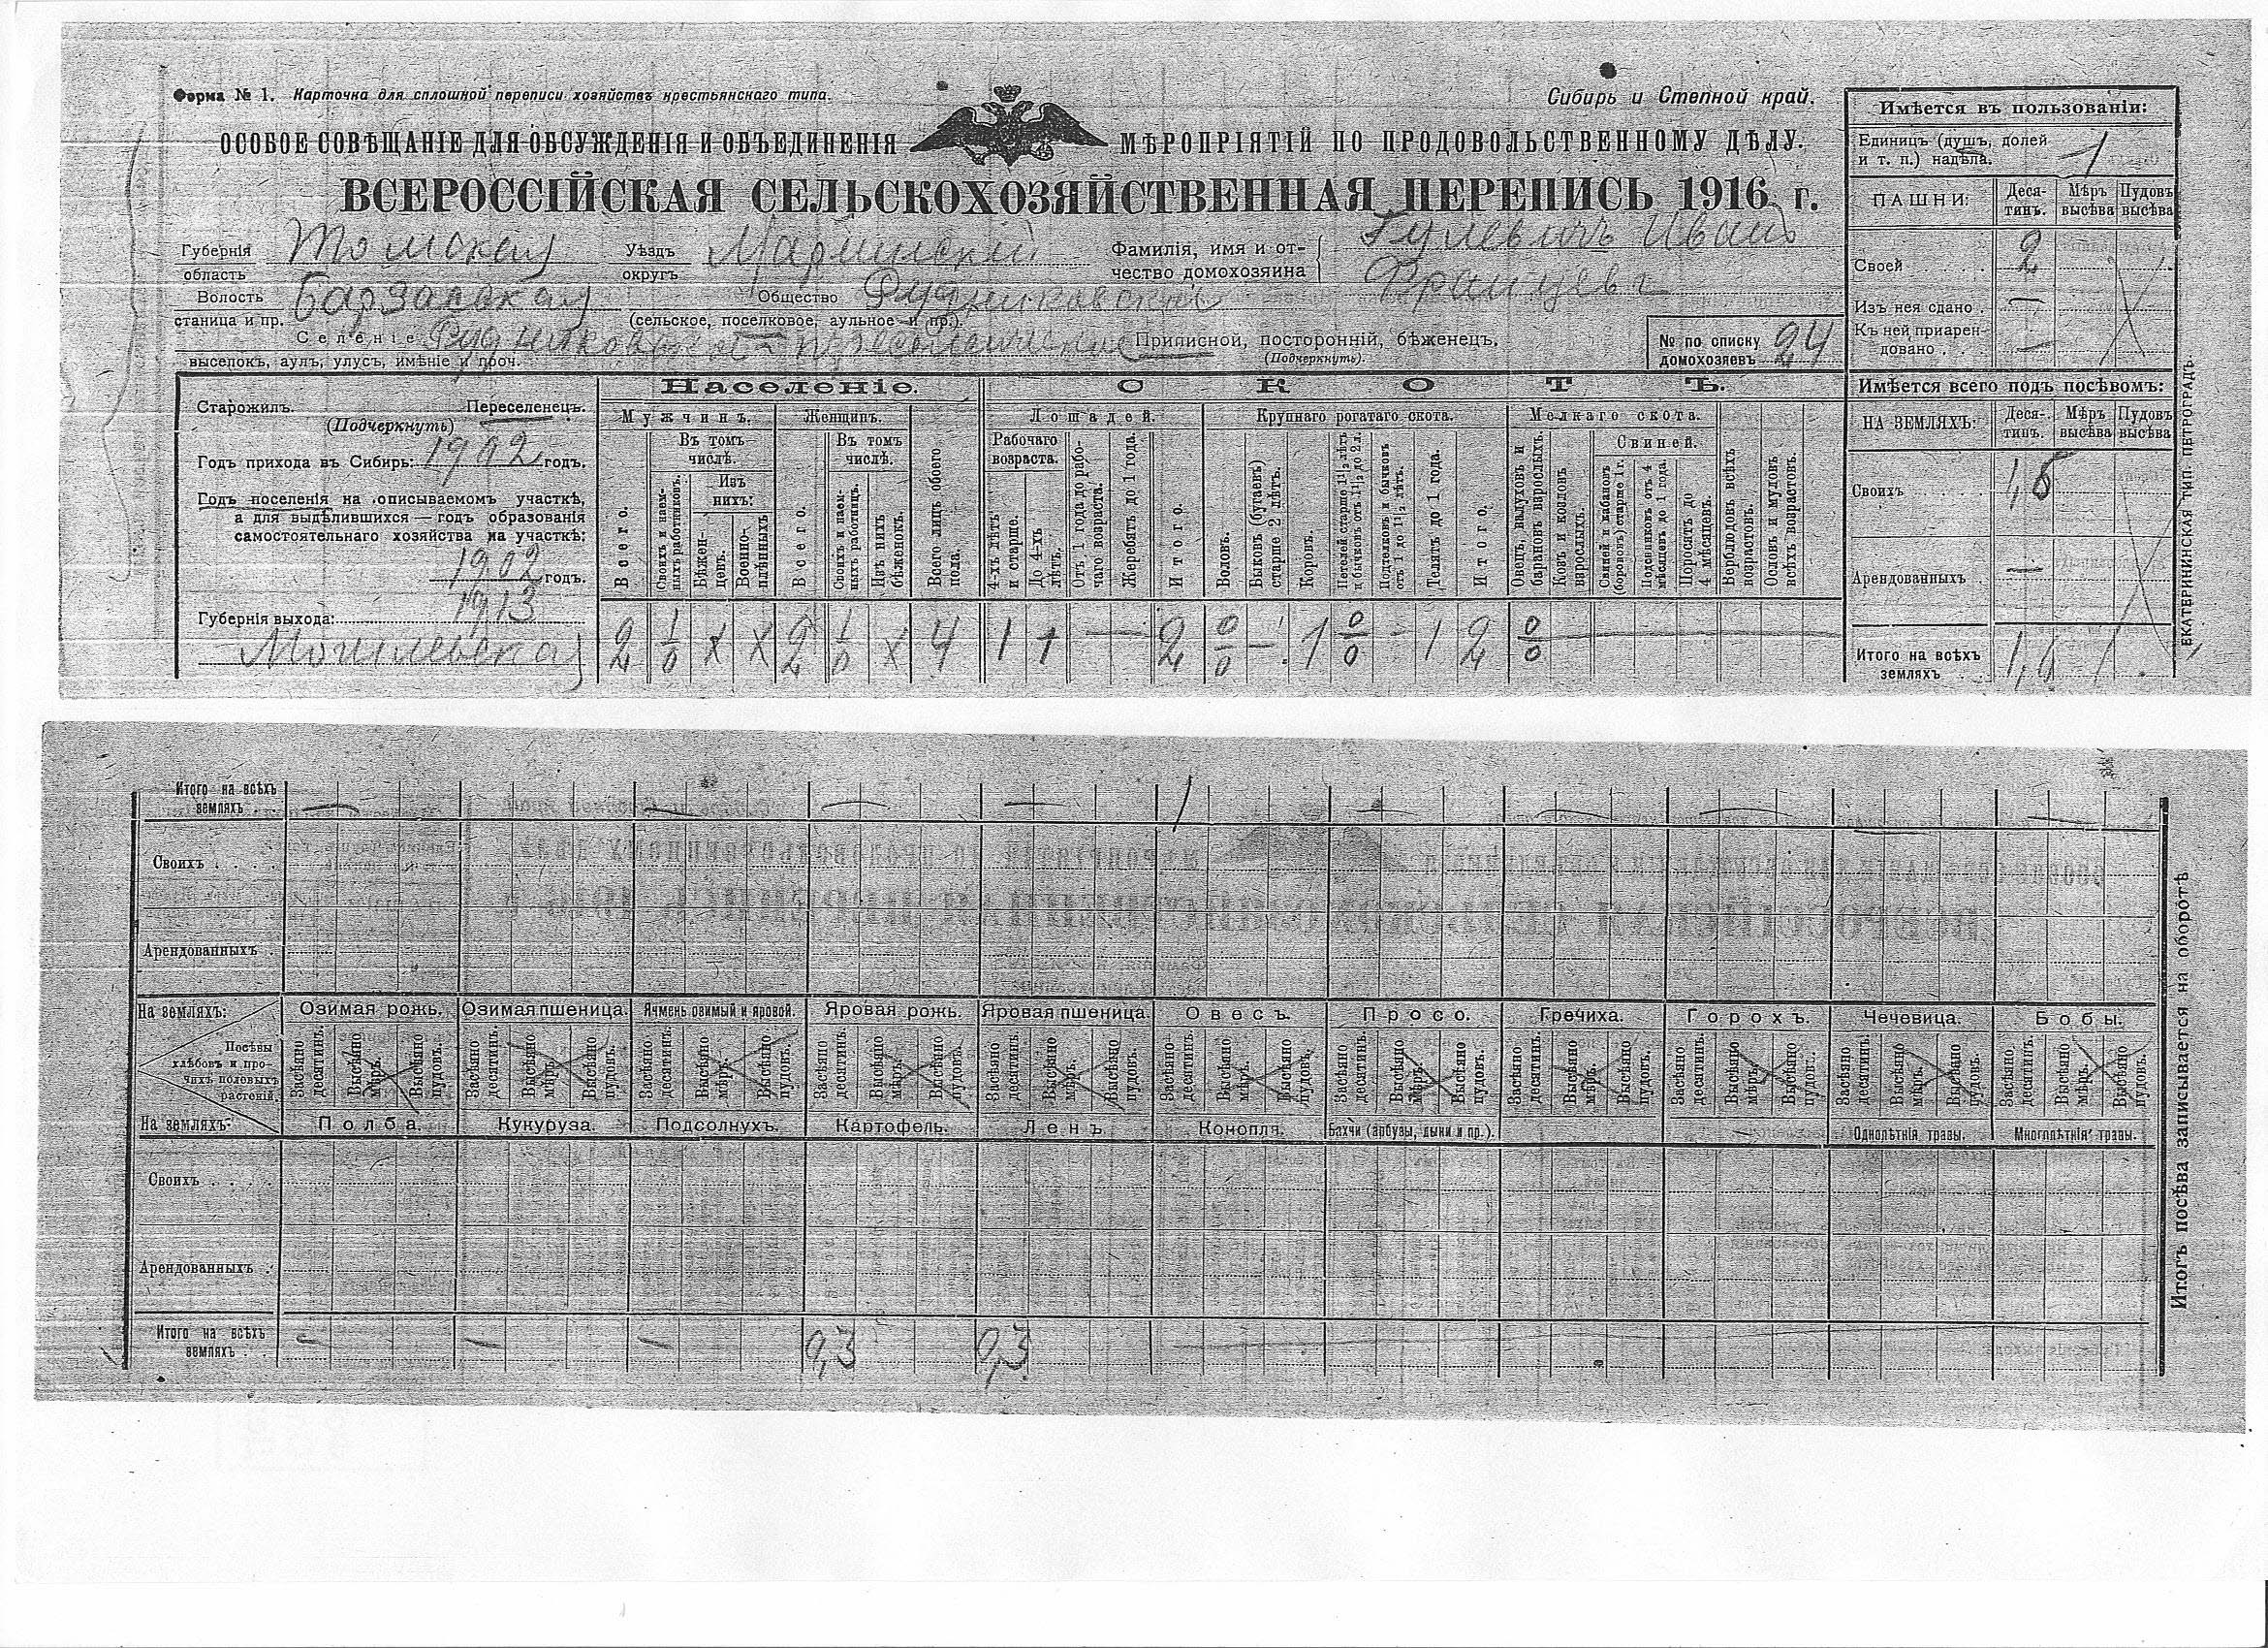 Форма № 1. Карточка для сплошной переписи хозяйствъ крестьянскаго типа.
Сибирь и Степной край.
ОСОБОЕ СОВѢЩАНІЕ ДЛЯ ОБСУЖДЕНІЯ И ОБЪЕДИНЕНІЯ МѢРОПРІЯТІЙ ПО ПРОДОВОЛЬСТВЕННОМУ ДѢЛУ.
ВСЕРОССІЙСКАЯ СЕЛЬСКОХОЗЯЙСТВЕННАЯ ПЕРЕПИСЬ 1916 г.
Губернія область Томская
Уѣздъ округъ Маріинскій
Фамилія, имя и отчество домохозяина Гулевичъ Иванъ
Францевъ
Волость станица и пр. Барзасская
Общество (сельское, поселковое, аульное и пр.).
Селеніе
выселокъ, аулъ, улусъ, имѣніе и проч.
Приписной, посторонній, бѣженец.
(Подчеркнуть).
№ по списку домохозяевъ 24
Старожилъ. Переселенецъ.
(Подчеркнуть)
Годъ прихода въ Сибирь: 1902 годъ.
Годъ поселенія на описываемомъ участкѣ,
а для выдѣлившихся — годъ образованія
самостоятельнаго хозяйства на участкѣ:
1902 годъ.
1913
Губернія выхода:
Могилевская
Населеніе.
Мужчинъ. Женщинъ.
Всего.
Въ томъ числѣ.
Своихъ и наемныхъ работниковъ.
Изъ нихъ:
Бѣженцевъ.
Военноплѣнныхъ
Всего.
Въ томъ числѣ.
Своихъ и наемныхъ работницъ.
Изъ нихъ бѣженокъ.
Всего лицъ обоего пола.
2 1/0 x x 2 1/0 x 4
СКОТЪ.
Лошадей.
Рабочаго возраста.
4-хъ лѣтъ и старше.
До 4-хъ лѣтъ.
Отъ 1 года до рабочаго возраста.
Жеребятъ до 1 года.
Итого.
Крупнаго рогатаго скота.
Воловъ.
Быковъ (бугаевъ) старше 2 лѣтъ.
Коровъ.
Нетелей старше 1 1/2 лѣтъ и бычковъ отъ 1 1/2 до 2 л.
Подтелковъ и бычковъ отъ 1 до 1 1/2 лѣтъ.
Телятъ до 1 года.
Итого.
Мелкаго скота.
Овецъ, валуховъ и барановъ взрослыхъ.
Козъ и козловъ взрослыхъ.
Свиней.
Свиней и кабановъ (борововъ) старше 1 г.
Подсвинковъ отъ 4 мѣсяцевъ до 1 года.
Поросятъ до 4 мѣсяцевъ.
Верблюдовъ всѣхъ возрастовъ.
Ословъ и муловъ всѣхъ возрастовъ.
1 1 — 2 0/0 — 1 0/0 - 1 2 0/0
Имѣется въ пользованіи:
Единицъ (душъ, долей и т. п.) надѣла. 1
ПАШНИ: Десятинъ. Мѣръ высѣва Пудовъ высѣва
Своей 2
Изъ нея сдано —
Къ ней приарендовано —
Имѣется всего подъ посѣвомъ:
НА ЗЕМЛЯХЪ: Десятинъ. Мѣръ высѣва Пудовъ высѣва
Своихъ
Арендованныхъ —
Итого на всѣхъ земляхъ
ЕКАТЕРИНИНСКАЯ ТИП. ПЕТРОГРАДЪ.
Итого на всѣхъ земляхъ — — — — 1 — — — — —
Своихъ
Арендованныхъ
На земляхъ: Озимая рожь. Озимая пшеница. Ячмень озимый и яровой. Яровая рожь. Яровая пшеница. Овесъ. Просо. Гречиха. Горохъ. Чечевица. Бобы.
Посѣвы хлѣбовъ и прочихъ полевыхъ растеній.
Засѣяно десятинъ. Высѣяно мѣръ. Высѣяно пудовъ.
Засѣяно десятинъ. Высѣяно мѣръ. Высѣяно пудовъ.
Засѣяно десятинъ. Высѣяно мѣръ. Высѣяно пудовъ.
Засѣяно десятинъ. Высѣяно мѣръ. Высѣяно пудовъ.
Засѣяно десятинъ. Высѣяно мѣръ. Высѣяно пудовъ.
Засѣяно десятинъ. Высѣяно мѣръ. Высѣяно пудовъ.
Засѣяно десятинъ. Высѣяно мѣръ. Высѣяно пудовъ.
Засѣяно десятинъ. Высѣяно мѣръ. Высѣяно пудовъ.
Засѣяно десятинъ. Высѣяно мѣръ. Высѣяно пудовъ.
Засѣяно десятинъ. Высѣяно мѣръ. Высѣяно пудовъ.
Засѣяно десятинъ. Высѣяно мѣръ. Высѣяно пудовъ.
На земляхъ: Полба. Кукуруза. Подсолнухъ. Картофель. Ленъ. Конопля. Бахчи (арбузы, дыни и пр.). Однолѣтнія травы. Многолѣтнія травы.
Своихъ
Арендованныхъ
Итого на всѣхъ земляхъ — — — 0,3 0,3
Итогъ посѣва записывается на оборотѣ